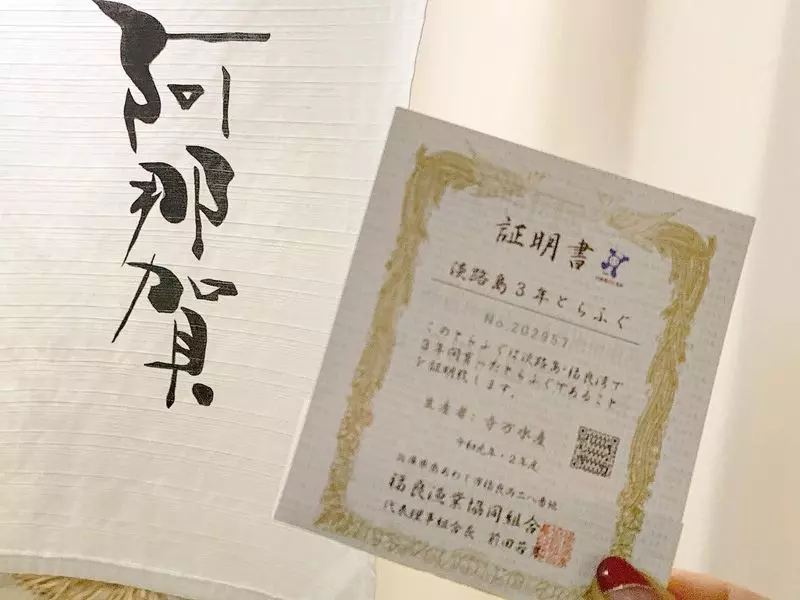 阿那賀
証明書
淡路島3年とらふぐ
No.202957
このとらふぐは淡路島・福良湾で
3年間育ったとらふぐであること
を証明致します。
生産者:寺万水産
令和元年・2年度
兵庫県南あわじ市福良丙二八番地
福良漁業協同組合
代表理事組合長 前田若男